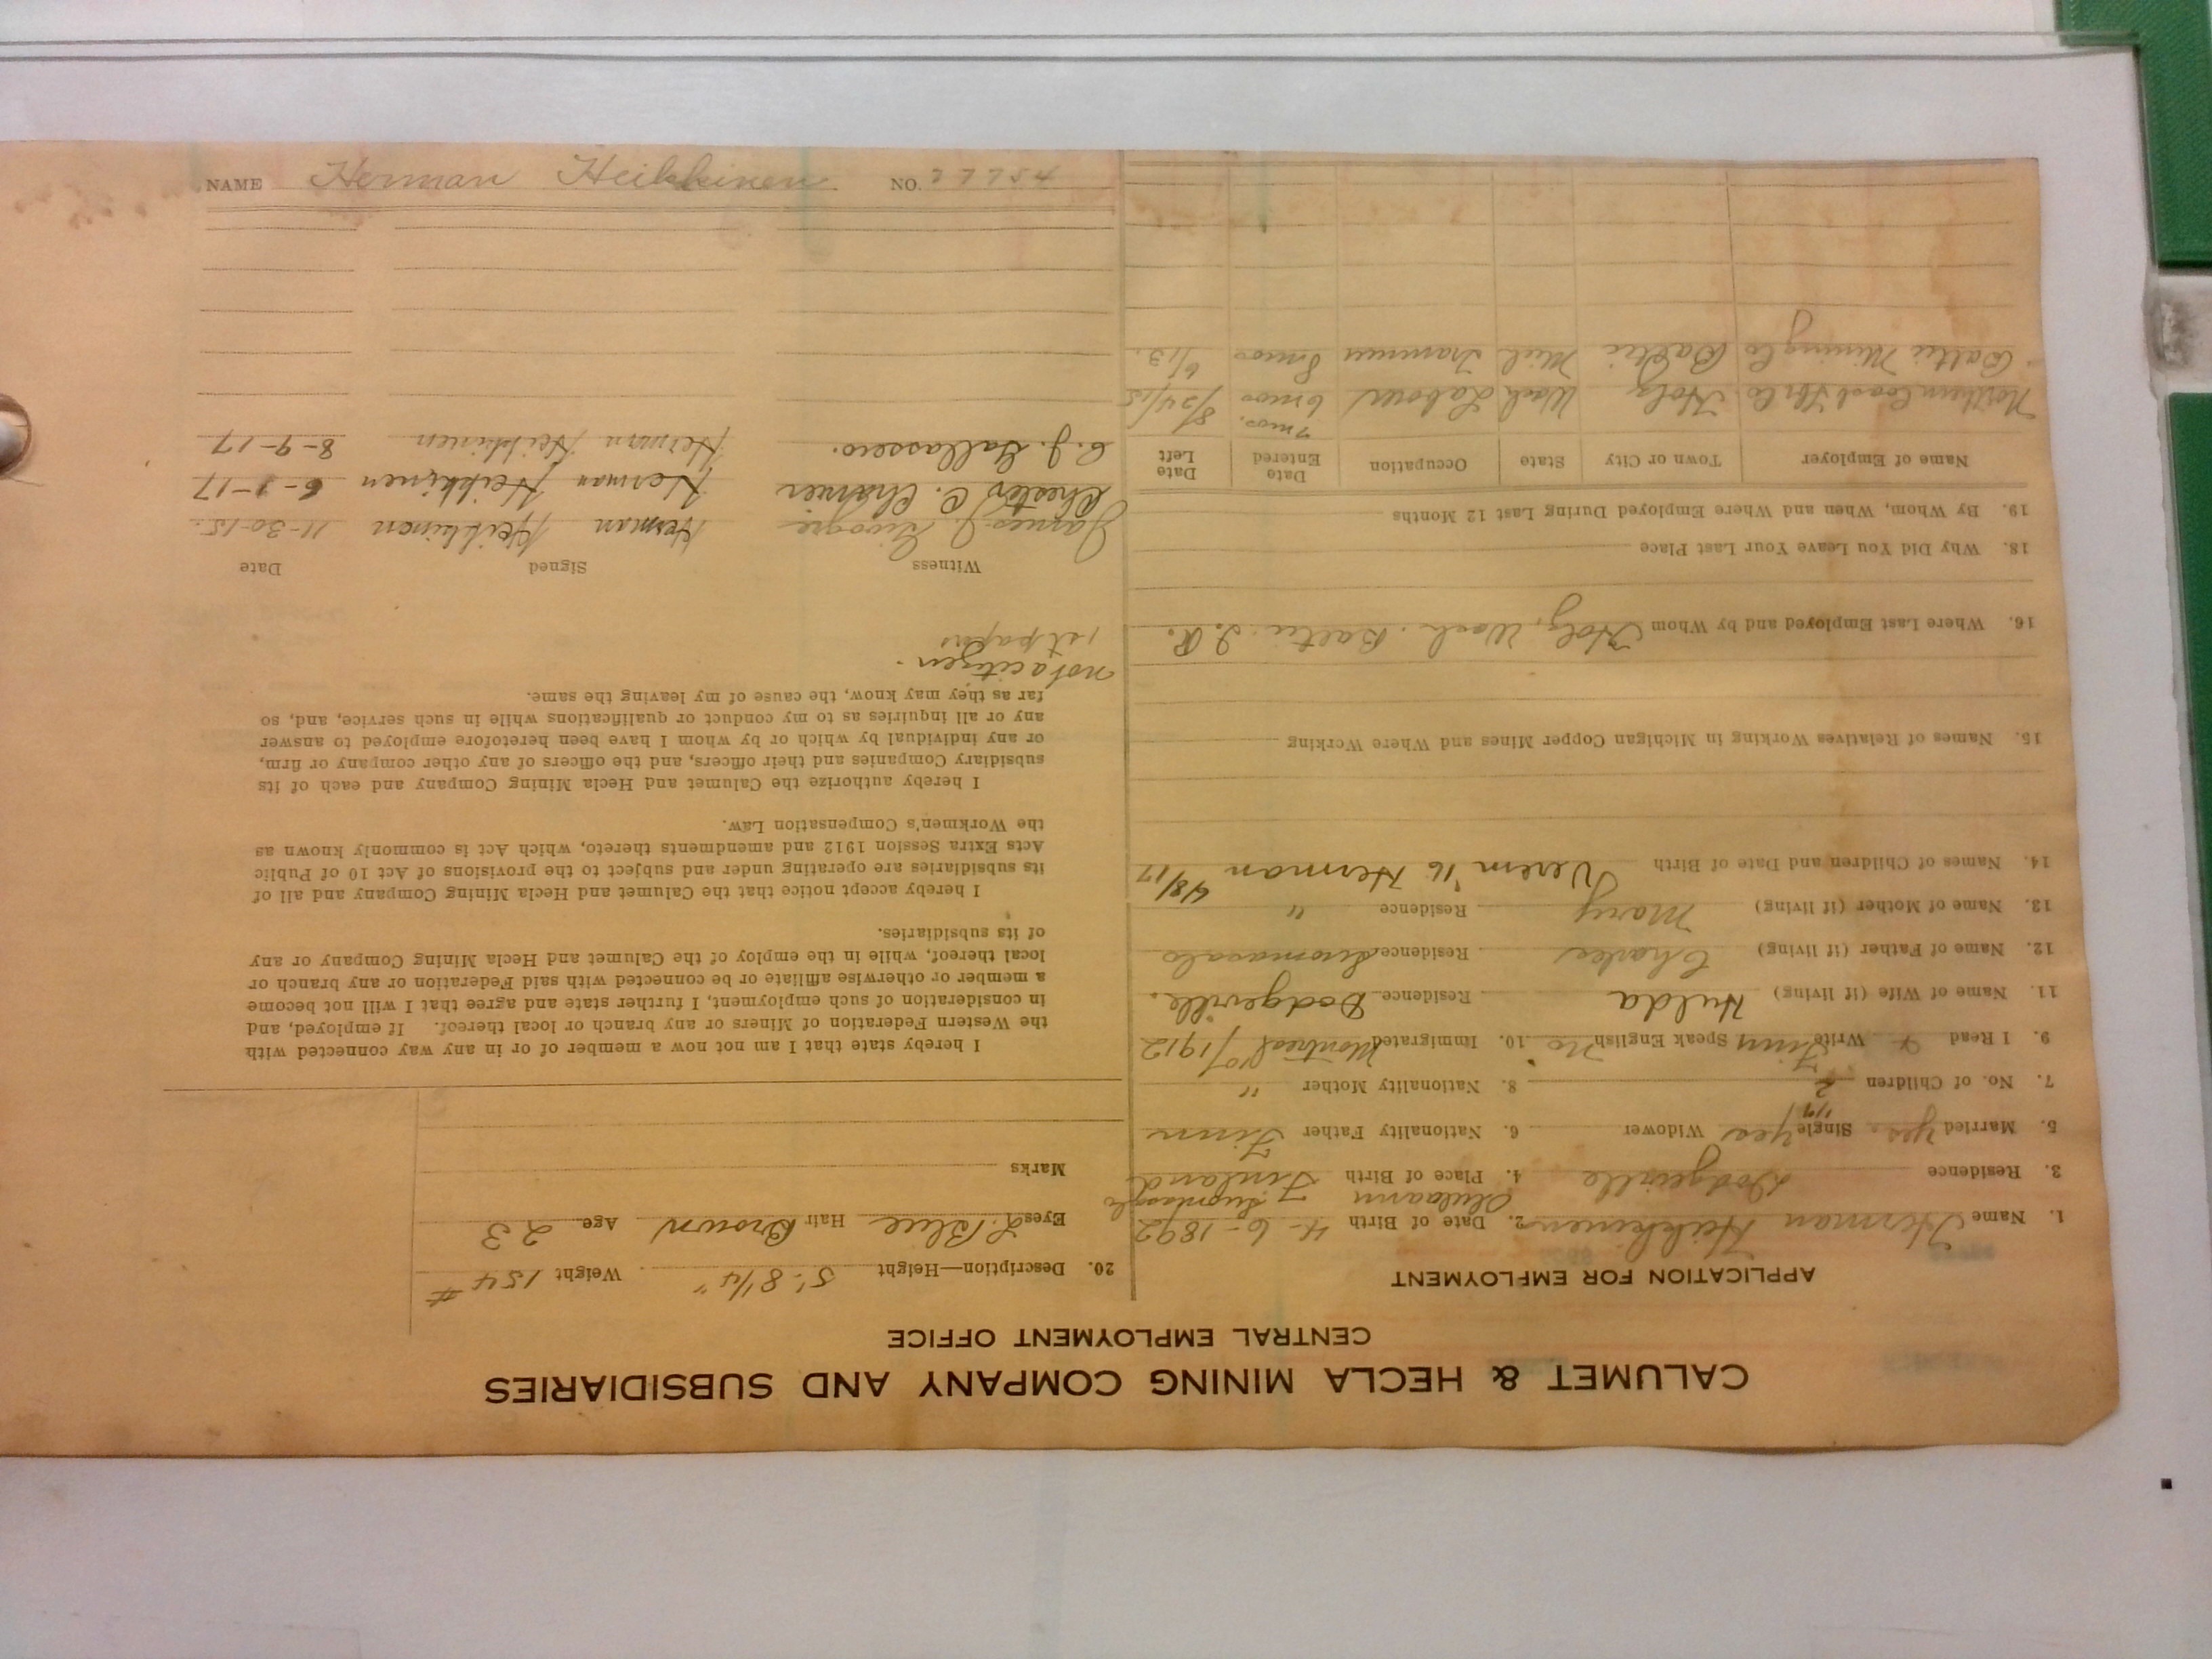 CALUMET & HECLA MINING COMPANY AND SUBSIDIARIES
CENTRAL EMPLOYMENT OFFICE
APPLICATION FOR EMPLOYMENT
1. Name Herman Heikkinen 2. Date of Birth 4-6-1892
3. Residence Dodgeville 4. Place of Birth Finland
5. Married Yes Single Yes Widower 6. Nationality Father Finn
7. No. of Children 2 8. Nationality Mother "
9. I Read & Write Finn Speak English No 10. Immigrated Montreal 1912
11. Name of Wife (if living) Hulda Residence Dodgeville.
12. Name of Father (if living) Charles Residence
13. Name of Mother (if living) Mary Residence "
14. Names of Children and Date of Birth '16 Herman 4/8/17
15. Names of Relatives Working in Michigan Copper Mines and Where Working
16. Where Last Employed and by Whom Wash. Baltic
18. Why Did You Leave Your Last Place
19. By Whom, When and Where Employed During Last 12 Months
Name of Employer Town or City State Occupation Date Entered Date Left
Northern Coast Wash Labour 7 mos. 6 mos 8/24/15
Baltic Mining Co Baltic Mich Trammer 8 mos 6/13.
20. Description—Height 5'-8 1/4" Weight 154 #
Eyes L. Blue Hair Brown Age 23
Marks
I hereby state that I am not now a member of or in any way connected with
the Western Federation of Miners or any branch or local thereof. If employed, and
in consideration of such employment, I further state and agree that I will not become
a member or otherwise affiliate or be connected with said Federation or any branch or
local thereof, while in the employ of the Calumet and Hecla Mining Company or any
of its subsidiaries.
I hereby accept notice that the Calumet and Hecla Mining Company and all of
its subsidiaries are operating under and subject to the provisions of Act 10 of Public
Acts Extra Session 1912 and amendments thereto, which Act is commonly known as
the Workmen's Compensation Law.
I hereby authorize the Calumet and Hecla Mining Company and each of its
subsidiary Companies and their officers, and the officers of any other company or firm,
or any individual by which or by whom I have been heretofore employed to answer
any or all inquiries as to my conduct or qualifications while in such service, and, so
far as they may know, the cause of my leaving the same.
not a citizen.
1st papers
Witness Signed Date
James J. Herman Heikkinen 11-30-15.
Chester C. Herman Heikkinen 6-1-17
Herman Heikkinen 8-9-17
NAME Herman Heikkinen. NO.